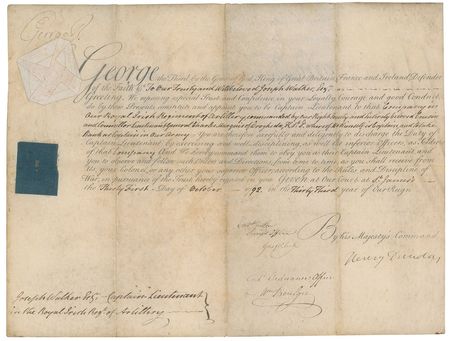 George R
George the Third by the Grace of God King of Great Britain France and Ireland Defender
of the Faith &c. To Our Trusty and Welbeloved Joseph Walker Esqr.
Greeting. We reposing especial Trust and Confidence in your Loyalty Courage and good Conduct
do by these Presents constitute and appoint you to be Captain Lieutenant to that Company in
Our Royal Irish Regiment of Artillery commanded by our Right trusty and Cousin
and Councillor Lieutenant General
Rank as Captain in Our Army. You are therefore carefully and diligently to discharge the Duty of
Captain Lieutenant by exercising and well disciplining as well the inferior Officers as Soldiers
of that Company And We do hereby command them to obey you as their Captain Lieutenant and
you to observe and follow such Orders and Directions from time to time as you shall receive from
Us, your Colonel, or any other your superior Officer according to the Rules and Discipline of
War, in pursuance of the Trust hereby reposed in you. Given at Our Court at St. James's
the Thirty First Day of October 92, in the Thirty Third year of Our Reign
By his Majesty's Command
Henry Dundas
Office
Ordnance Office
Joseph Walker Esqr. Captain Lieutenant
in the Royal Irish Regt. of Artillery